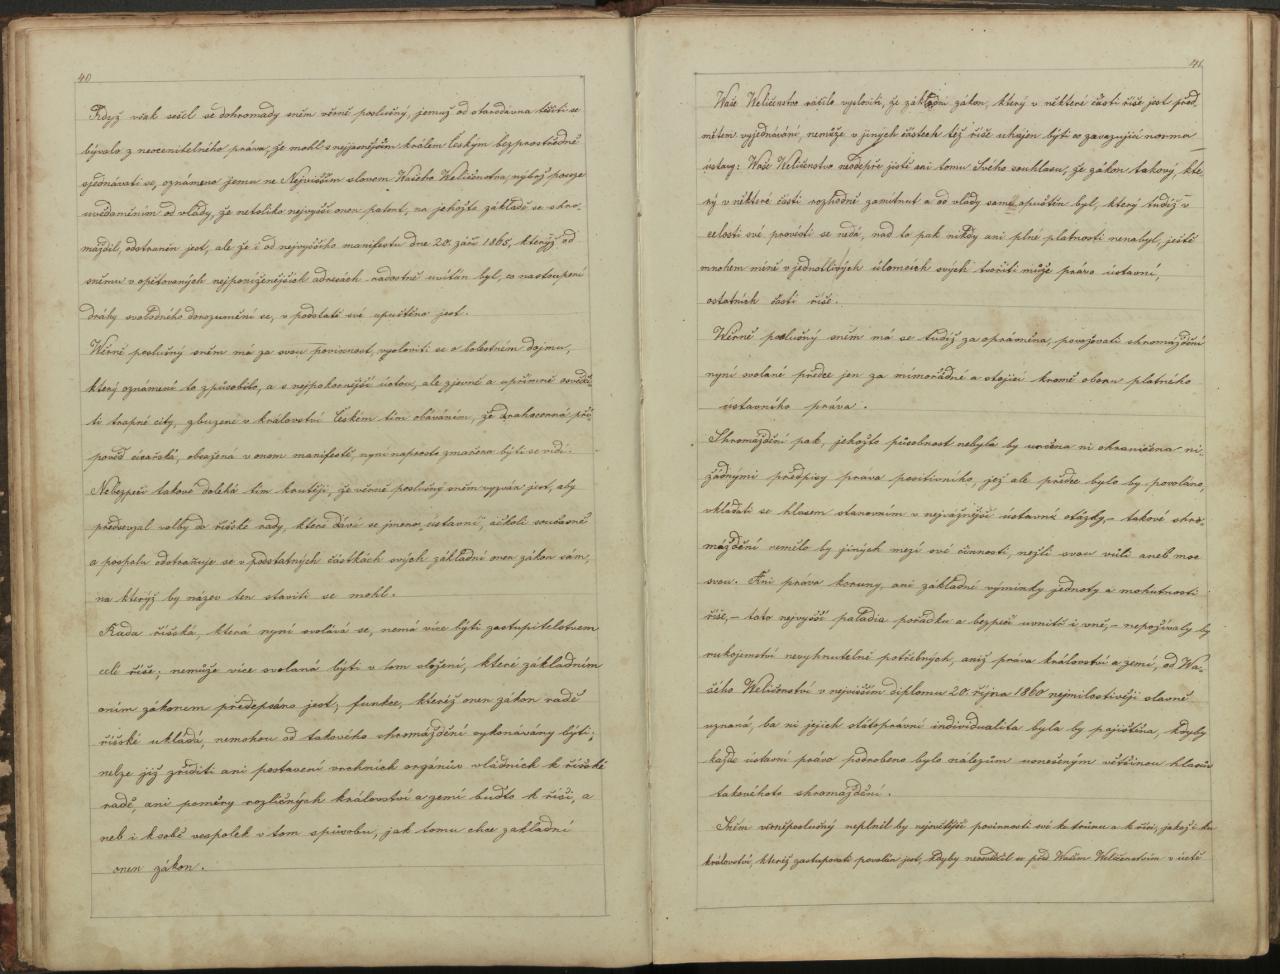 40
Když však sešel se dohromady sněm věrně poslušný, jemuž od starodávna těšiti se
bývalo z neocenitelného práva, že mohl s nejjasnějším králem českým bezprostředně
sjednávati se, oznámeno jemu ne Nejvišším slovem Wašeho Weličenstva, nýbrž pouze
uvědoměním od vlády, že netoliko nejvyšší onen patent, na jehožto základě se shro-
máždil, odstraněn jest, ale že i od nejvyššího manifestu dne 20. září 1865, kterýž od
sněmu v opětovaných nejponíženějších adresách radostně uvítán byl, co nastoupení
dráhy svobodného dorozumění se, v podstatě své upuštěno jest.
Wěrně poslušný sněm má za svou povinnost, vysloviti se o bolestném dojmu,
který oznámení to způsobilo, a s nejpokornější úctou, ale zjevně a upřímně osvědči-
ti trapné city, zbuzené v království Českém tím obáváním, že drahocenná pří-
pověď císařská, obsažená v onom manifestě, nyní naprosto zmařena býti se vidí.
Nebezpečí takové doléhá tím krutěji, že věrně poslušný sněm vyzván jest, aby
předsevzal volby do říšské rady, které dává se jméno „ústavní“, ačkoli současně
a pospolu odstraňuje se v podstatných částkách svých základní onen zákon sám,
na kterýž by název ten staviti se mohl.
Rada říšská, která nyní svolává se, nemá více býti zastupitelstvem
celé říše; nemůže více svolaná býti v tom složení, které základním
oním zákonem předepsáno jest; funkce, kteréž onen zákon radě
říšské ukládá, nemohou od takového shromáždění vykonávány býti;
nelze již zříditi ani postavení vrchních orgánův vládních k říšské
radě, ani poměry rozličných království a zemí buďto k říši, a
neb i k sobě vespolek v tom spůsobu, jak tomu chce základní
onen zákon.
41
Waše Weličenstvo ráčilo vysloviti, že základní zákon, který v některé části říše jest před-
mětem vyjednávání, nemůže v jiných částech též říše uhajen býti co zavazující norma
ústavy: Waše Weličenstvo neodepře jistě ani tomu Svého souhlasu, že zákon takový, kte-
rý v některé části rozhodně zamítnut a od vlády samé opuštěn byl, který tudíž v
celosti své provésti se nedá, nad to pak nikdy ani plné platnosti nenabyl, ještě
mnohem méně v jednotlivých úlomcích svých tvořiti může právo ústavní,
ostatních částí říše.
Wěrně poslušný sněm má se tudíž za oprávněna, považovati shromáždění
nyní svolané přece jen za mimořádné a stojící kromě oboru platného
ústavního práva.
Shromáždění pak, jehožto působnost nebyla by určena ni ohraničena ni-
žádnými předpisy práva positivního, jež ale předce bylo by povoláno,
vkládati se hlasem stanovním v nejvážnější ústavní otázky, – takové shro-
máždění nemělo by jiných mezí své činnosti, nežli svou vůli aneb moc
svou. Ani práva koruny, ani základné výminky jednoty a mohutnosti
říše, – tato nejvyšší paladia pořádku a bezpečí uvnitř i vně, – nepožívaly by
rukojemství nevyhnutelně potřebných, aniž práva království a zemí, od Wa-
šého Weličenství v nejvišším diplomu 20. října 1860 nejmilostivěji slavně
uznaná, ba ni jejich státoprávní individualita byla by pojištěna, kdyby
každé ústavní právo podrobeno bylo nálezům vznešeným většinou hlasův
takovéhoto shromáždění.
Sněm věrněposlušný neplnil by nejsvětější povinnosti své ke trůnu a k říši, jakož i ku
království, kteréž zastupovati povolán jest, kdyby neosvědčil se před Waším Weličenstvím v úctě